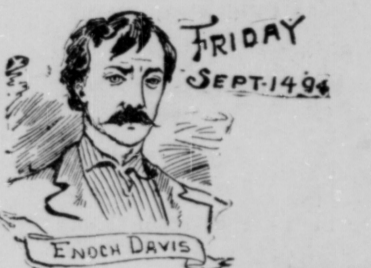 FRIDAY
SEPT. 14 94
ENOCH DAVIS